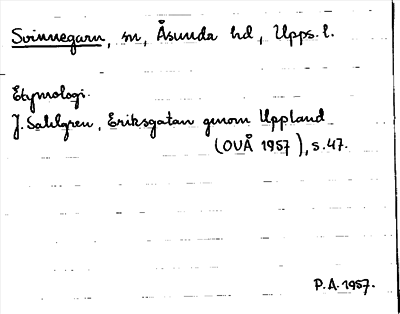 Svinnegarn, sn, Åsunda hd, Upps. l.
Etymologi.
J. Sahlgren, Eriksgatan genom Uppland
(OUÅ 1957), s. 47.
P.A. 1957.